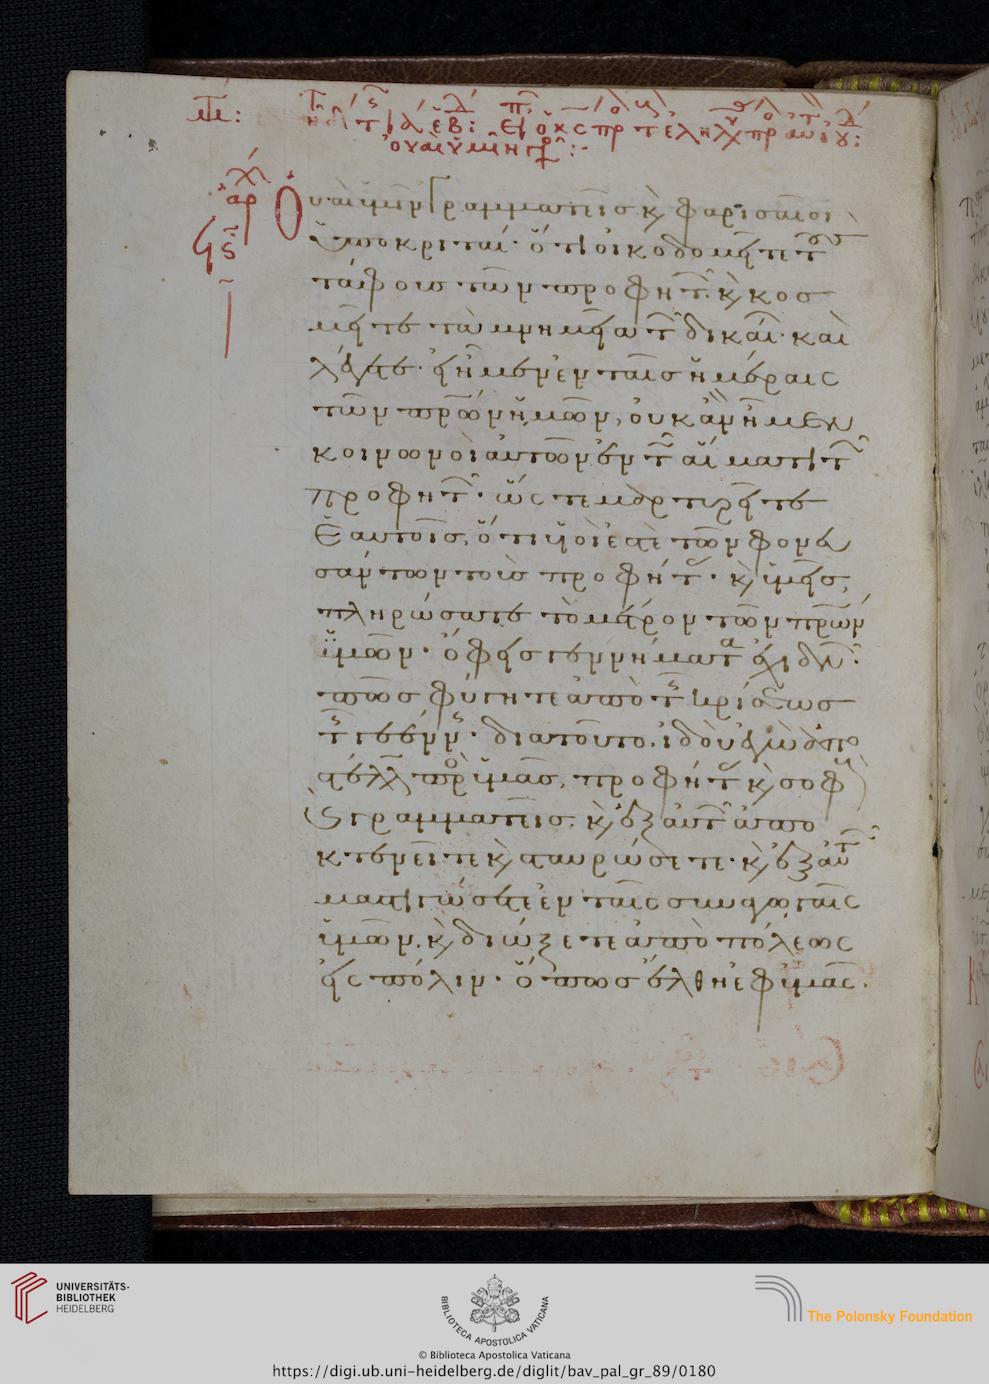 Οὐαὶ ὑμῖν γραμματεῖς κ(αὶ) φαρισαῖοι
ὑποκριταί· ὅτι οἰκοδομεῖτε τοὺς
τάφους τῶν προφητῶν· κ(αὶ) κοσ
μεῖτε τὰ μνημεῖα τῶν δικαίων· καὶ
λέγετε· εἰ ἦμεν ἐν ταῖς ἡμέραις
τῶν πρων ἡμῶν, οὐκ ἂν ἦμεν
κοινωνοὶ αὐτῶν ἐν τῶ αἵματι τῶν
προφητῶν· ὥστε μαρτυρεῖτε
ἑαυτοῖς, ὅτι υἱοί ἐστὲ τῶν φονευ
σάντων τοὺς προφήτας· κ(αὶ) ὑμεῖς,
πληρώσατε τὸ μέτρον τῶν πρων
ὑμῶν· ὄφεις γεννήματα ἐχιδνῶν·
πῶς φύγητε ἀπὸ τῆς κρίσεως
τῆς γεέννης· διατοῦτο, ἰδοὺ ἐγὼ ἀπο
στέλλω πρὸς ὑμᾶς, προφήτας κ(αὶ) σοφοὺς
κ(αὶ) γραμματεῖς· κ(αὶ) ἐξ αὐτῶν ἀπο
κτενεῖτε κ(αὶ) σταυρώσετε· κ(αὶ) ἐξ αὐτῶν
μαστιγώσετε ἐν ταῖς συναγωγαῖς
ὑμῶν· κ(αὶ) διώξετε ἀπὸ πόλεως
εἰς πόλιν· ὅπως ἔλθη ἐφ ὑμᾶς·
UNIVERSITÄTS-
BIBLIOTHEK
HEIDELBERG
BIBLIOTECA APOSTOLICA VATICANA
The Polonsky Foundation
© Biblioteca Apostolica Vaticana
https://digi.ub.uni-heidelberg.de/diglit/bav_pal_gr_89/0180